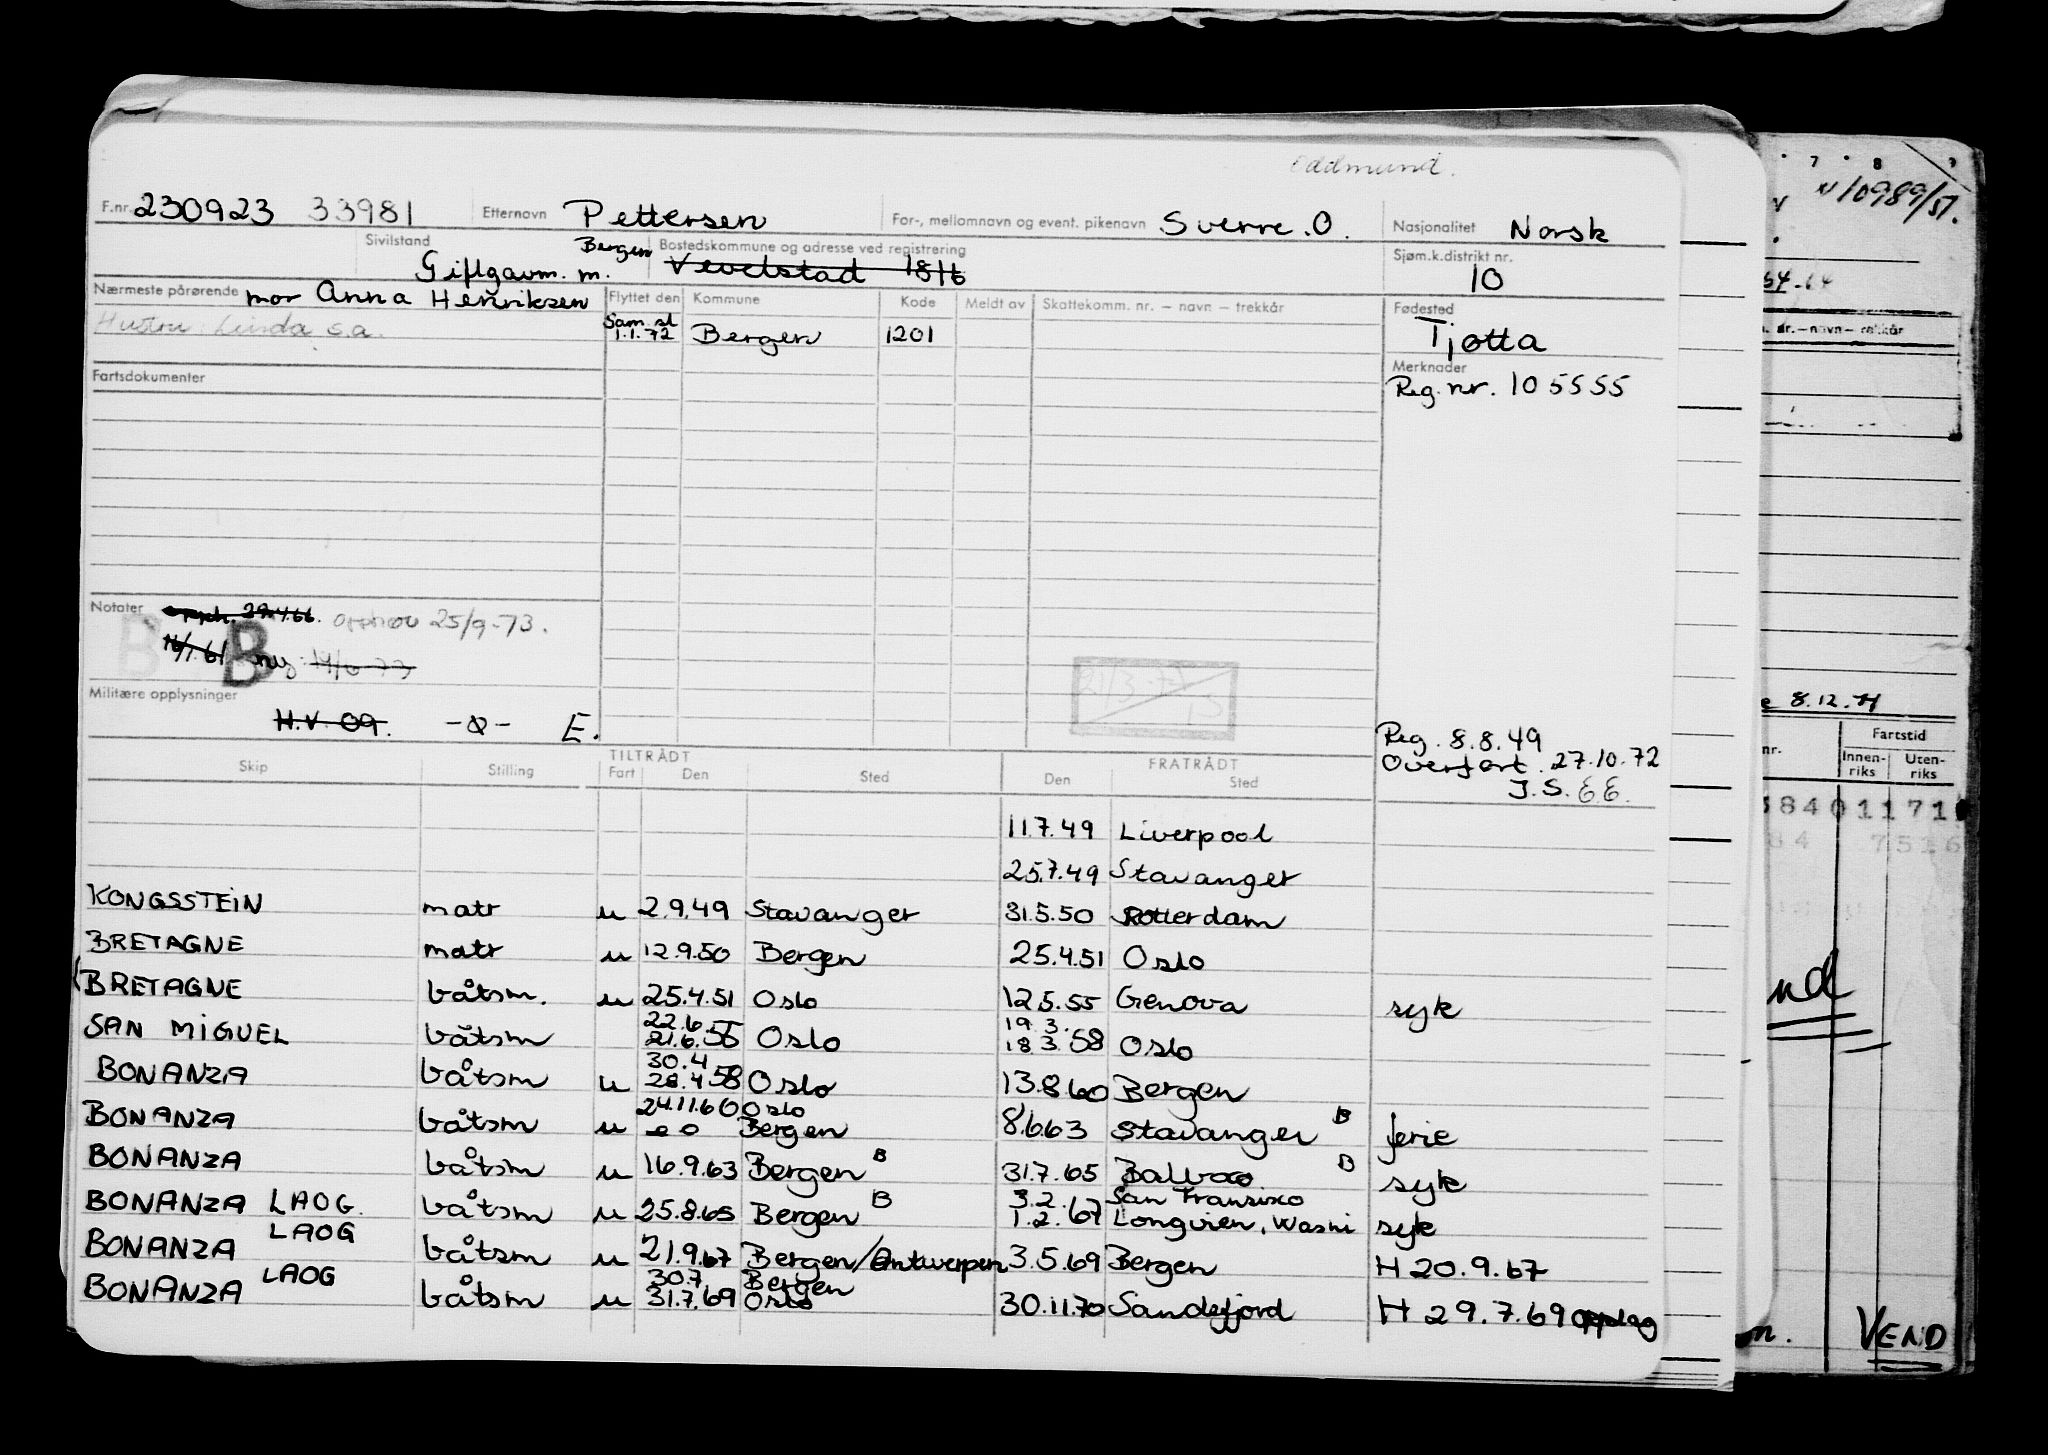 Oddmund.
F.nr. 230923 33981 Etternavn Pettersen For-, mellomnavn og event. pikenavn Sverre. O. Nasjonalitet Norsk
Sivilstand Gift gavm. m. Bergen Bostedskommune og adresse ved registrering Vevelstad 1816 Sjøm.k.distrikt nr. 10
Nærmeste pårørende mor Anna Henriksen Flyttet den Kommune Kode Meldt av Skattekomm. nr. – navn – trekkår Fødested
Hustru: Linda s.a. Sam. sl 1.1.72 Bergen 1201 Tjøtta
Fartsdokumenter Merknader
Reg. nr. 105555
Notater opph. 29.4.66. opphev 25/9-73.
16/1.61 B ny: 14/6-73
B
21/3-74
Militære opplysninger
H.V. 09. -Q- E.
Reg. 8.8.49
Overført. 27.10.72
J.S. E.E.
Skip Stilling TILTRÅDT Fart Den Sted FRATRÅDT Den Sted
11.7.49 Liverpool
25.7.49 Stavanger
KONGSSTEIN matr u 2.9.49 Stavanger 31.5.50 Rotterdam
BRETAGNE matr u 12.9.50 Bergen 25.4.51 Oslo
BRETAGNE båtsm. u 25.4.51 Oslo 12.5.55 Genova syk
22.6. 19.3.
SAN MIGUEL båtsm 21.6.55 Oslo 18.3.58 Oslo
30.4
BONANZA båtsm u 28.4.58 Oslo 13.8.60 Bergen
24.11.60 Oslo
BONANZA båtsm u Bergen 8.6.63 Stavanger B ferie
BONANZA båtsm u 16.9.63 Bergen B 31.7.65 Balboa B syk
3.2. San Fransisco
BONANZA LAOG. båtsm u 25.8.65 Bergen B 1.2.67 Longview, Wash syk
BONANZA LAOG båtsm u 21.9.67 Bergen/Antwerpen 3.5.69 Bergen H 20.9.67
30.7 Bergen
BONANZA LAOG båtsm u 31.7.69 Oslo 30.11.70 Sandefjord H 29.7.69 opplag
7 8 9
N 10989/51.
64-64
nr.—navn— rekkår
8.12.71
nr. Fartstid
Innen-riks Uten-riks
8401171
84 7516
nd
VEND